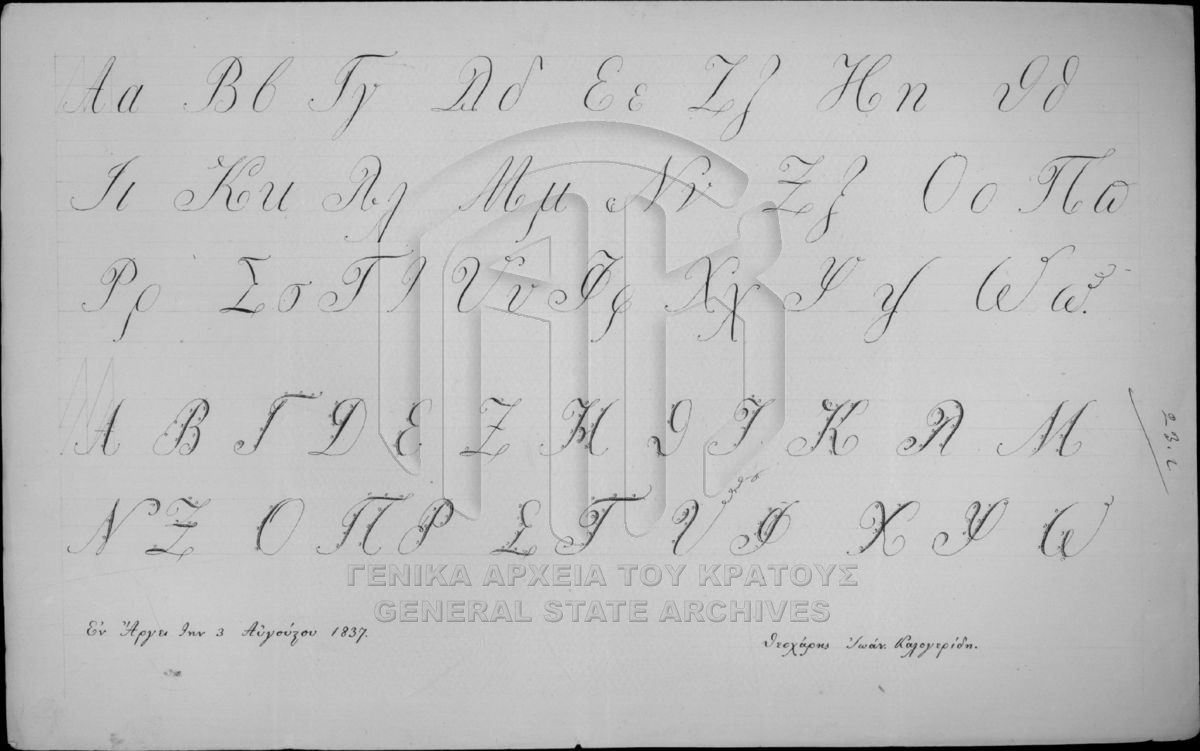 Αα Ββ Γγ Δδ Εε Ζζ Ηη Θθ
Ιι Κκ Λλ Μμ Νν Ξξ Οο Πϖ
Ρρ Σσ Ττ Υυ Φφ Χχ Ψψ Ωω.
Α Β Γ Δ Ε Ζ Η Θ Ι Κ Λ Μ
Ν Ξ Ο Π Ρ Σ Τ Υ Φ Χ Ψ Ω
ΓΕΝΙΚΑ ΑΡΧΕΙΑ ΤΟΥ ΚΡΑΤΟΥΣ
GENERAL STATE ARCHIVES
Ἐν Ἄργει την 3 Αὐγούστου 1837.
Θεοχάρης Ἰωάν. Καλογερίδη.